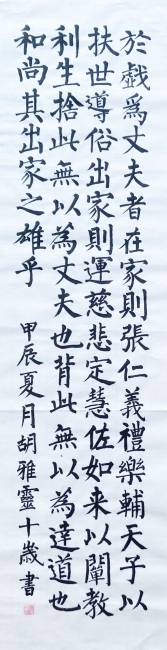 於戲為丈夫者在家則張仁義禮樂輔天子以
扶世導俗出家則運慈悲定慧佐如来以闡教
利生捨此無以為丈夫也背此無以為達道也
和尚其出家之雄乎
甲辰夏月胡雅靈十歲書